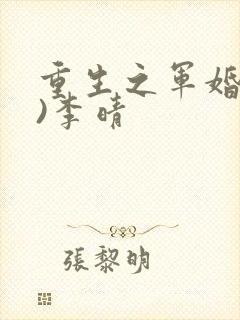 重生之军婚
)李晴
張黎明